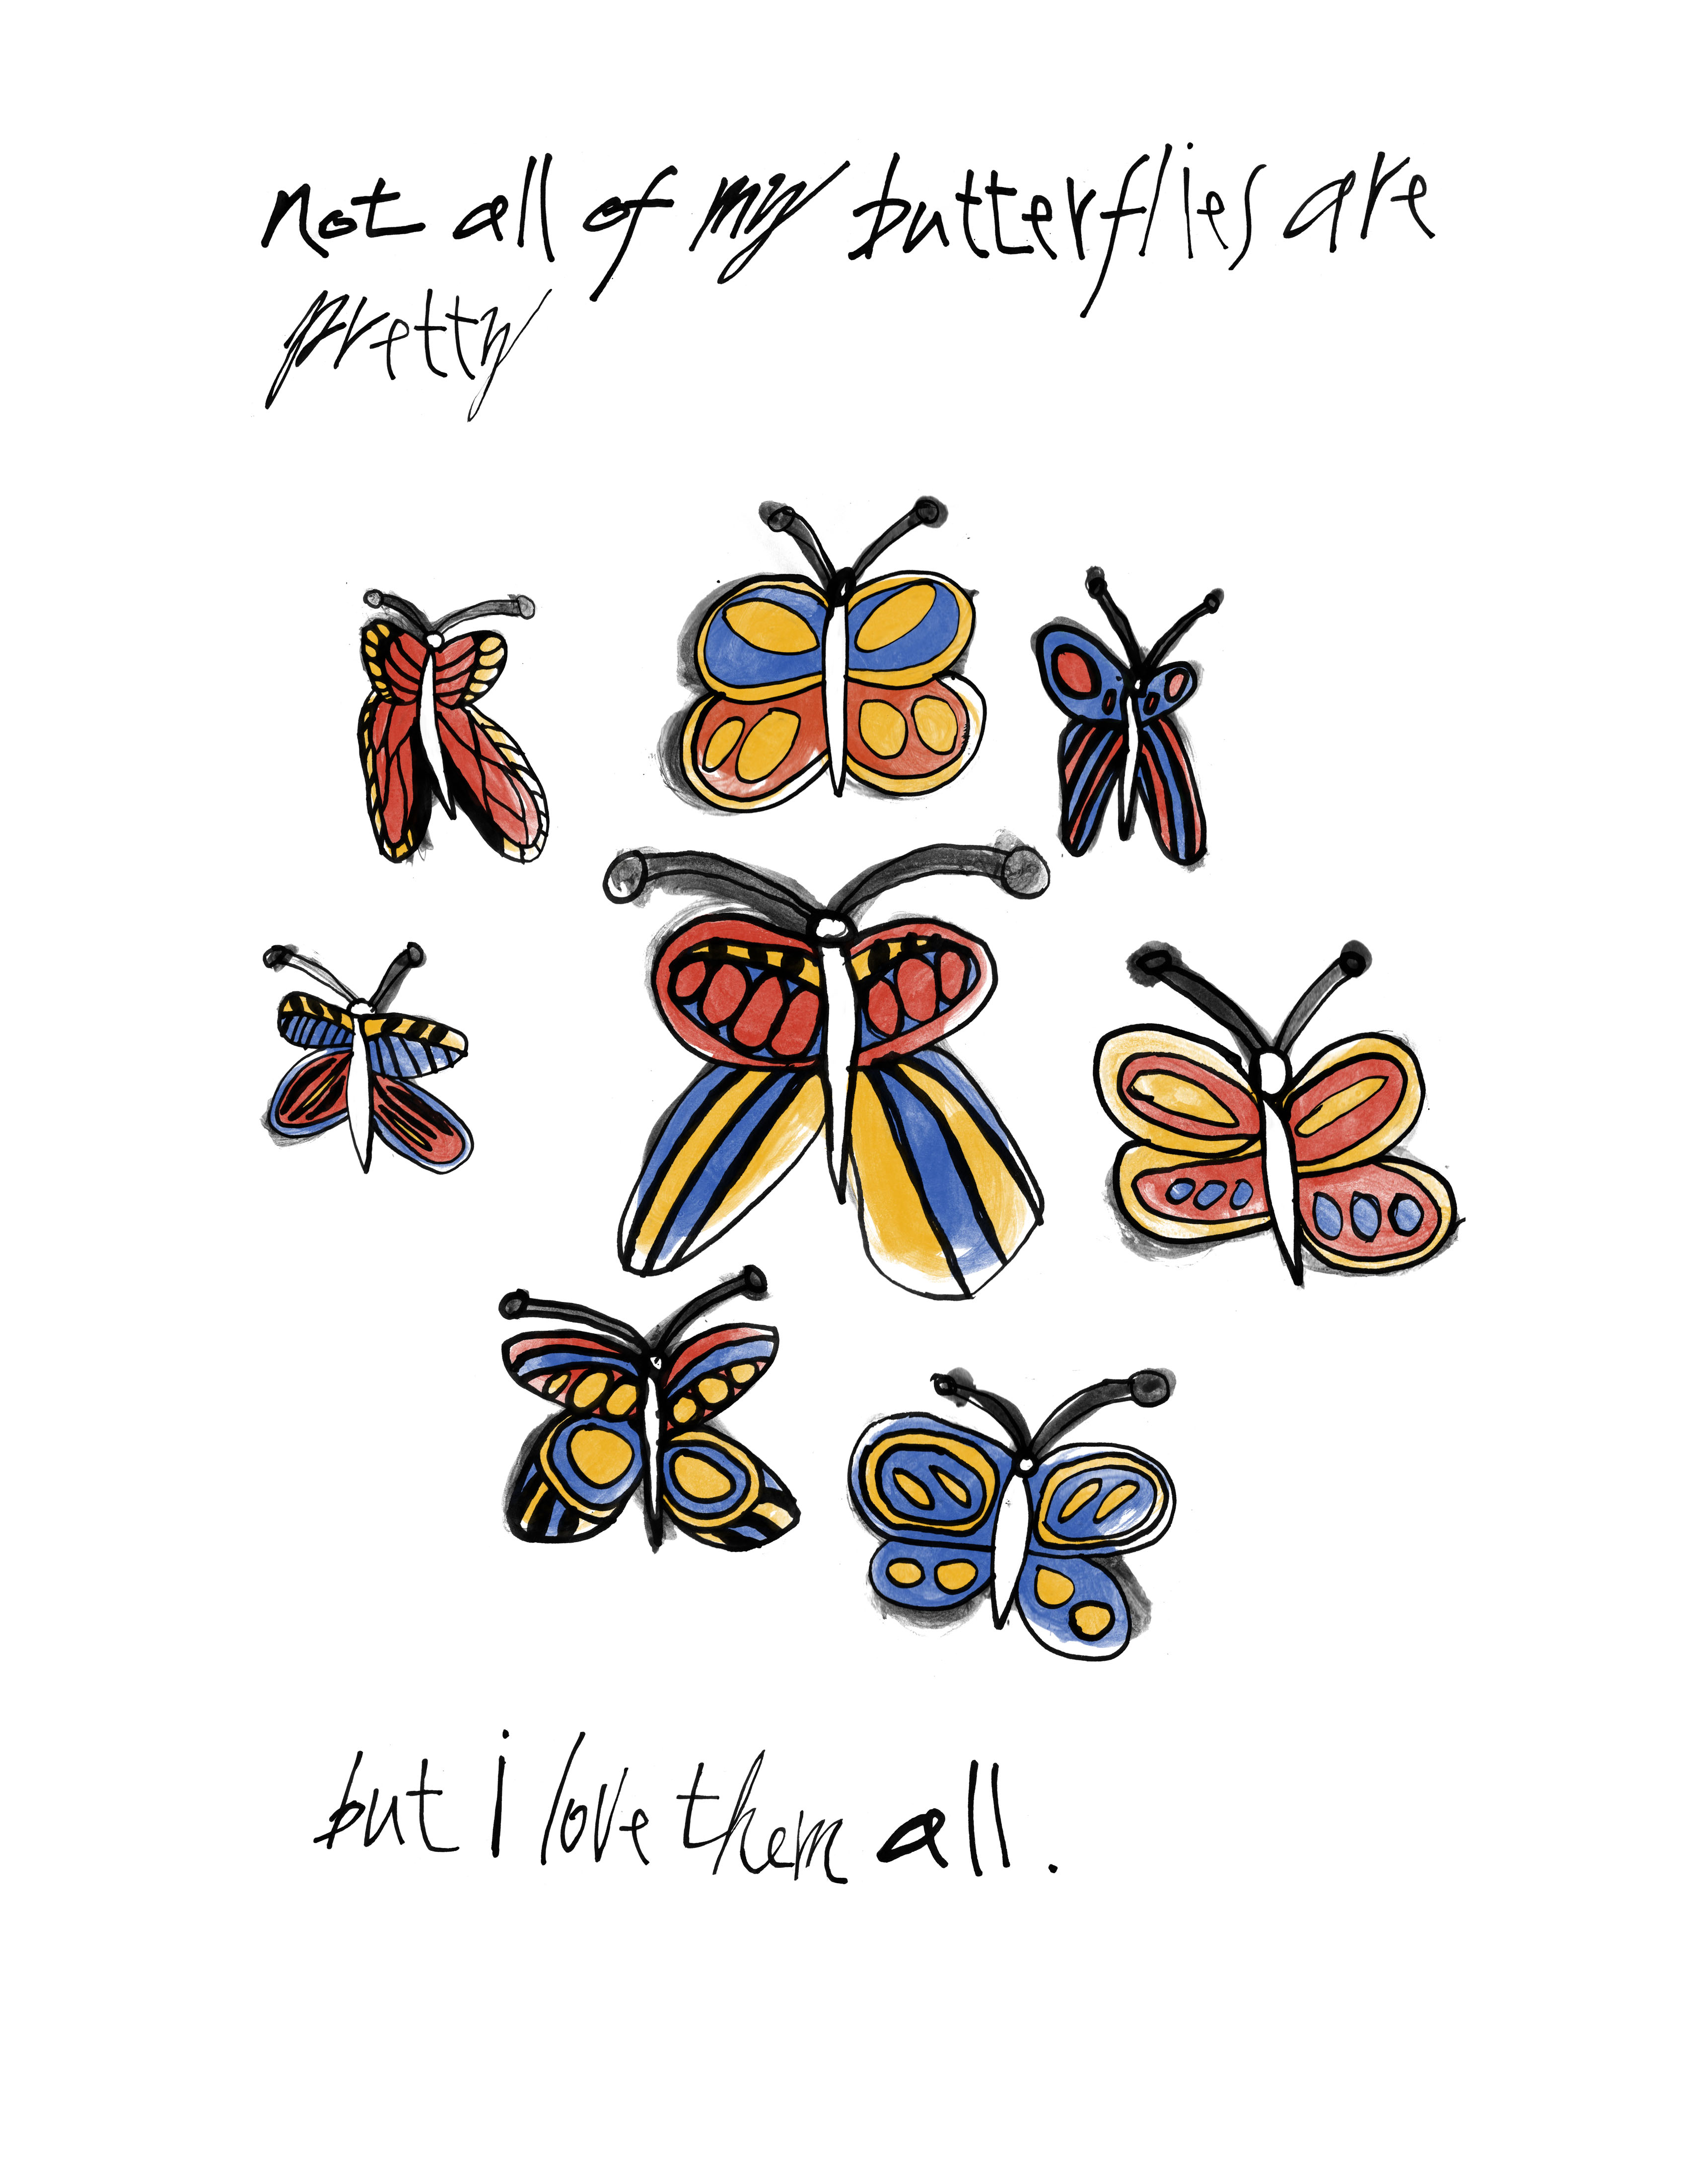 not all of my butterflies are
pretty
but i love them all.